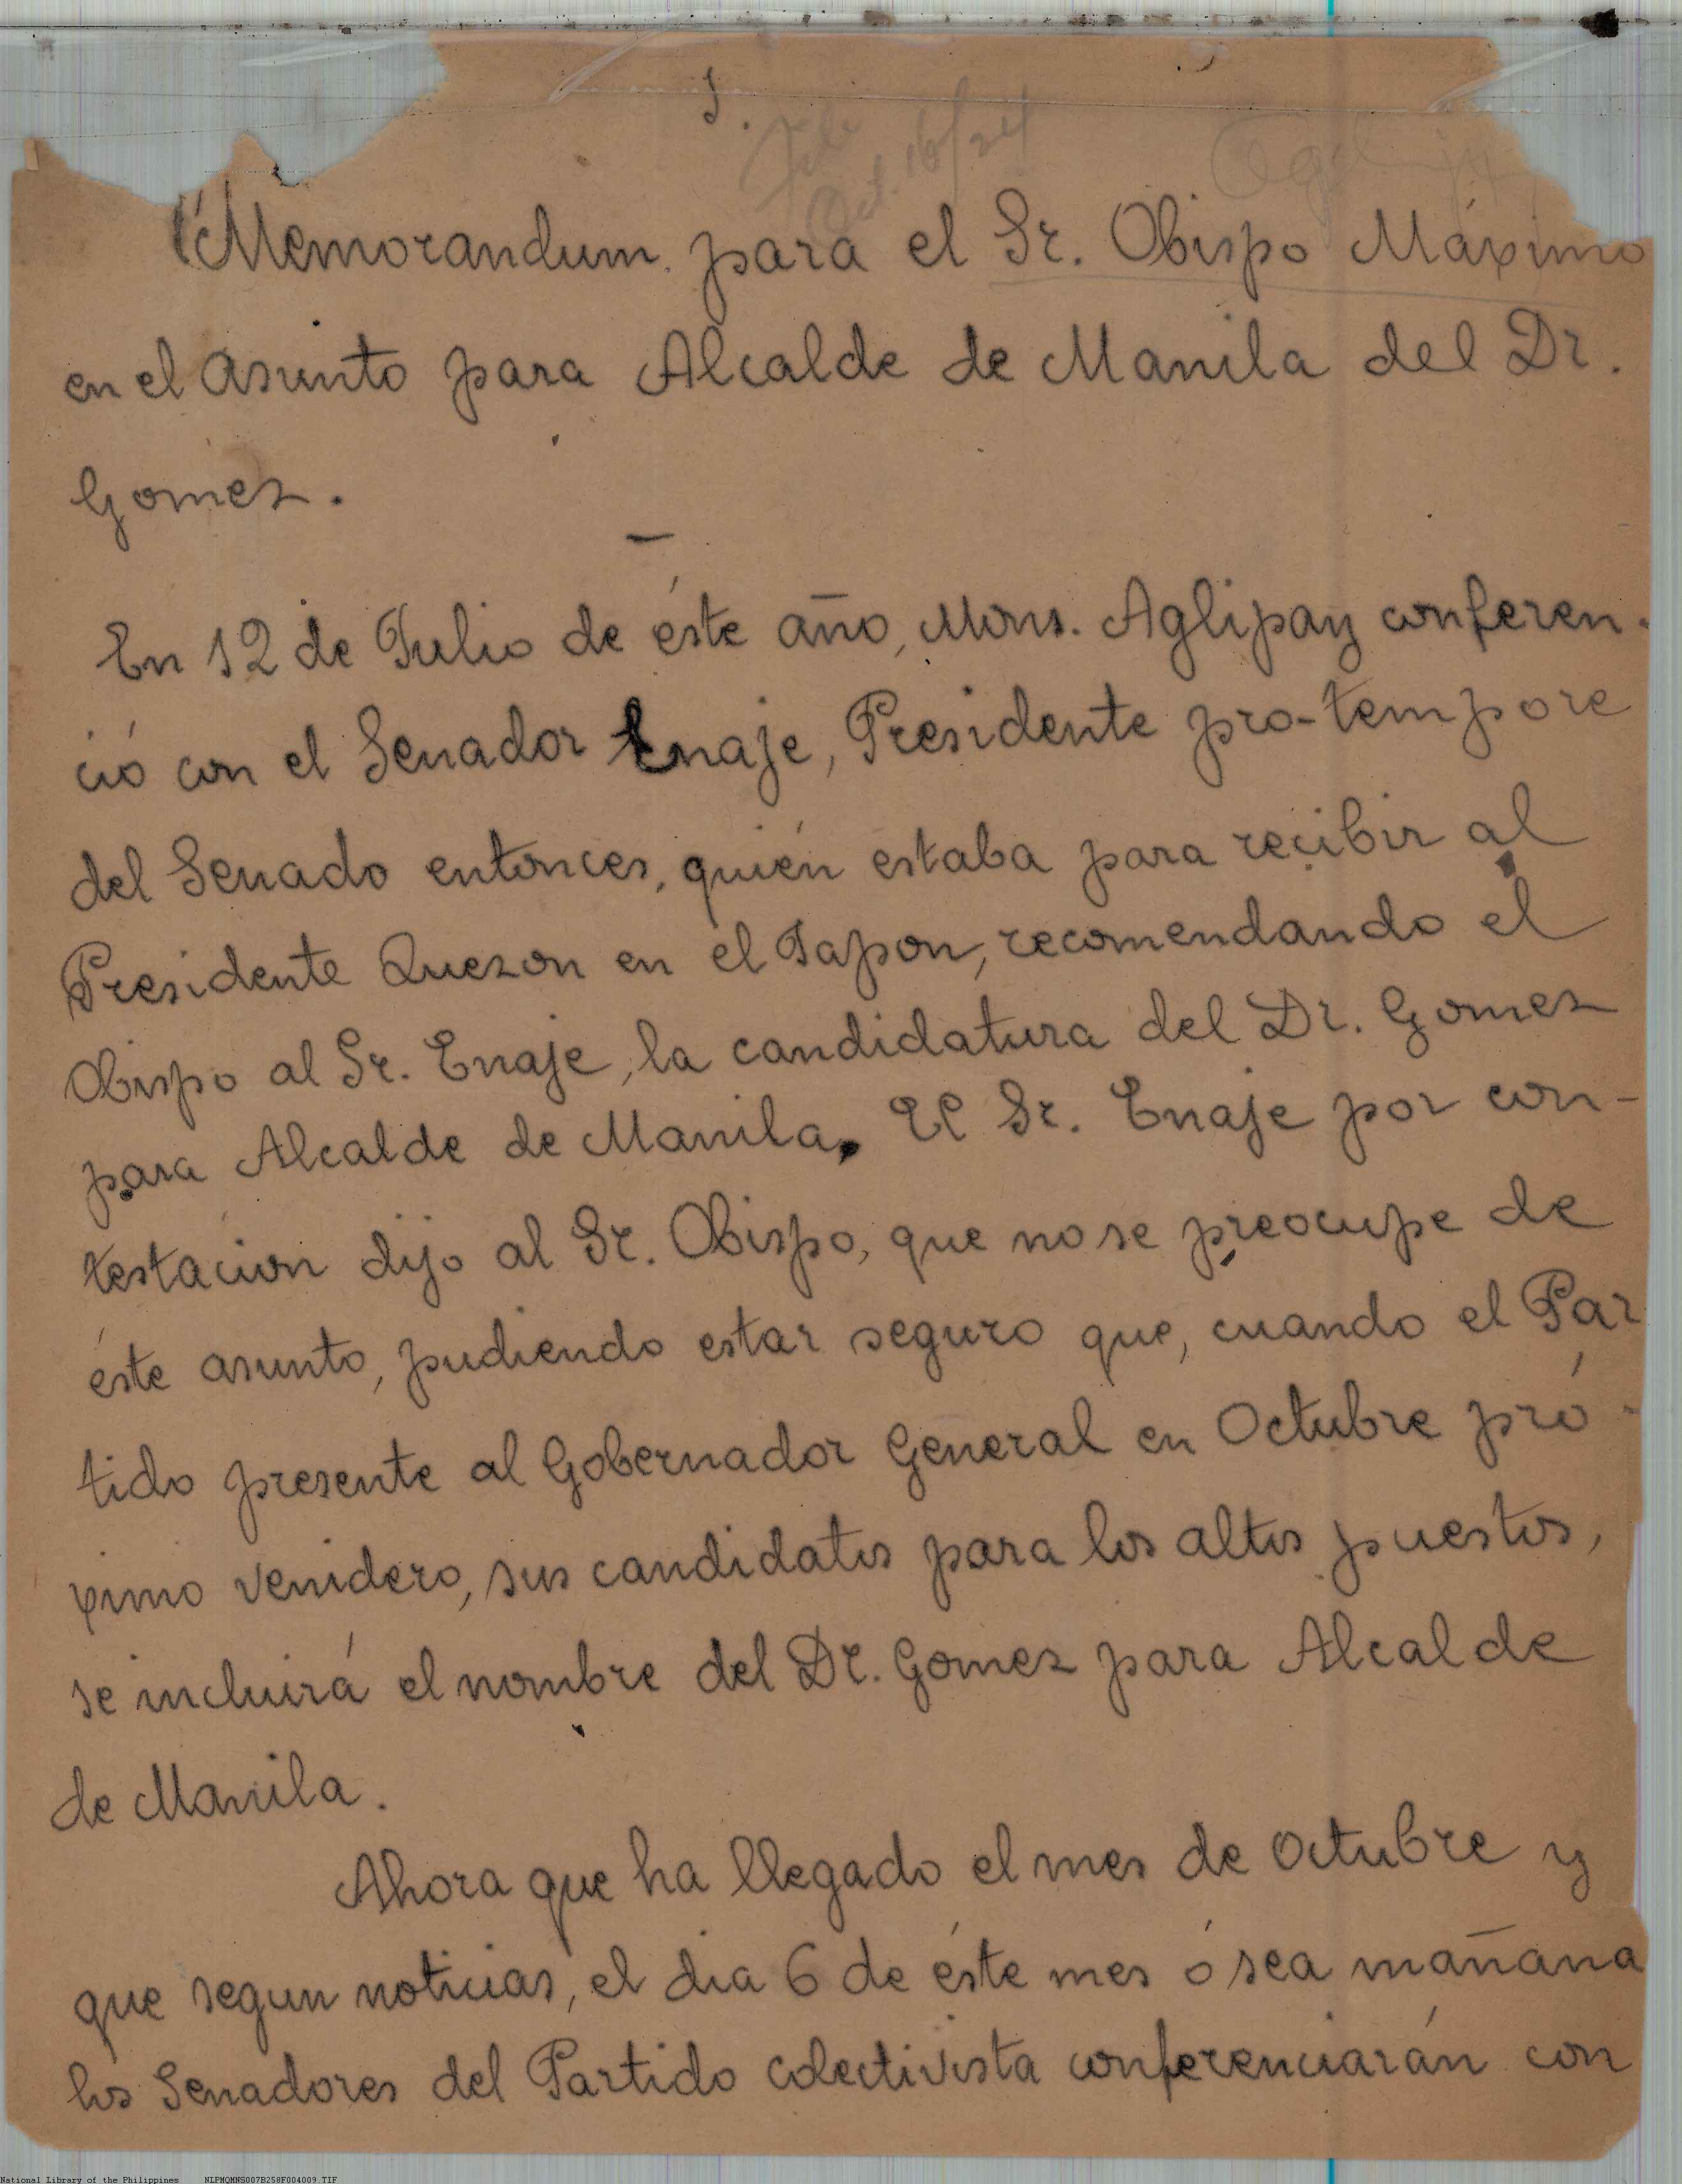 1.
File
Oct. 16/24
"Memorandum para el Sr. Obispo Máximo
en el asunto para Alcalde de Manila del Dr.
Gomez.
—
En 12 de Julio de éste año, Mons. Aglipay conferen-
ció con el Senador Enaje, Presidente pro-tempore
del Senado entonces, quién estaba para recibir al
Presidente Quezon en el Japon, recomendando el
Obispo al Sr. Enaje, la candidatura del Dr. Gomez
para Alcalde de Manila. El Sr. Enaje por con-
testacion dijo al Sr. Obispo, que no se preocupe de
éste asunto, pudiendo estar seguro que, cuando el Par
tido presente al Gobernador General en Octubre pró-
ximo venidero, sus candidatos para los altos puestos,
se incluirá el nombre del Dr. Gomez para Alcalde
de Manila.
Ahora que ha llegado el mes de Octubre y
que segun noticias, el dia 6 de éste mes ó sea mañana
los Senadores del Partido colectivista conferenciarán con
National Library of the Philippines NLPMQMNS007B258F004009.TIF